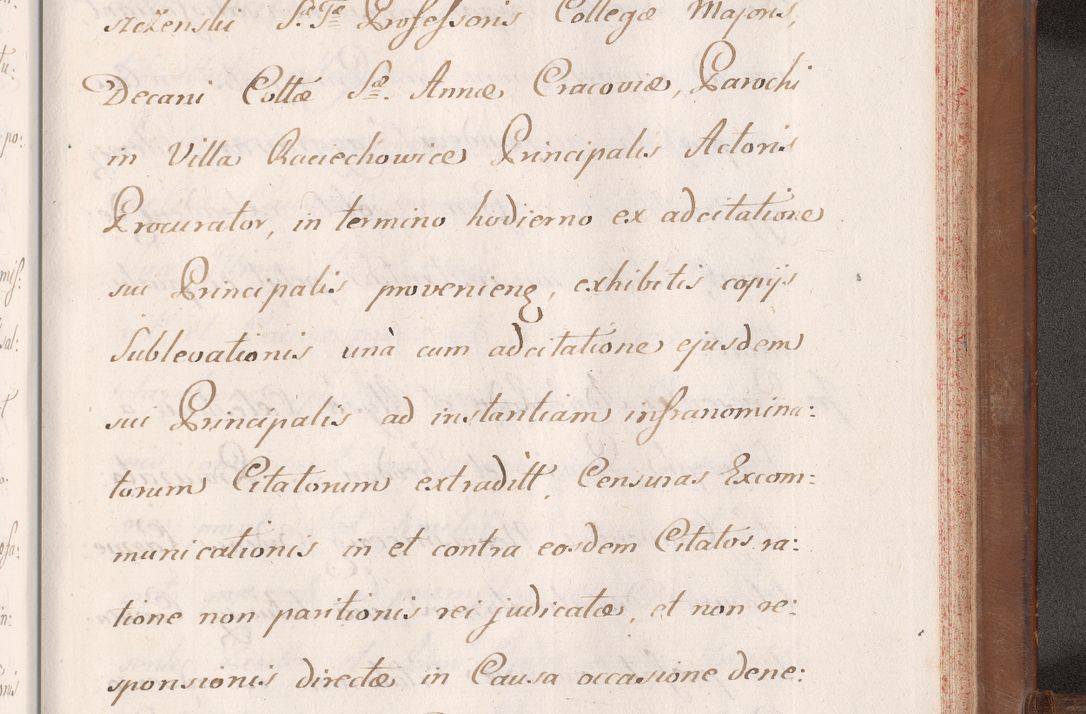 S. Tæ Professoris Collegæ Majoris,
Decani Collæ Sæ. Annæ Cracoviæ, Parochi
in Villa Raciechowice Principalis Actoris
Procurator, in termino hodierno ex adcitatione
sui Principalis provenieng, exhibitis copijs
Sublevationis unà cum adcitatione ejusdem
sui Principalis ad instantiam infranomina:
torum Citatorum extraditt, Censuras Excom:
municationis in et contra eosdem Citatos ra:
tione non paritionis rei judicatæ, et non re:
sponsionis directæ in Causa occasione dene: